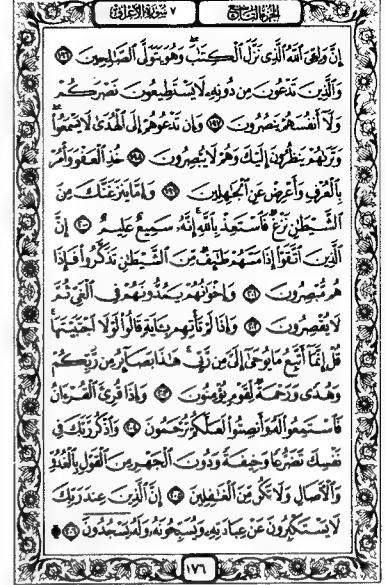 الجزء التاسع
٧ سورة الأعراف
إِنَّ وَلِـِّۧىَ ٱللَّهُ ٱلَّذِى نَزَّلَ ٱلْكِتَٰبَ ۖ وَهُوَ يَتَوَلَّى ٱلصَّٰلِحِينَ ١٩٦
وَٱلَّذِينَ تَدْعُونَ مِن دُونِهِۦ لَا يَسْتَطِيعُونَ نَصْرَكُمْ
وَلَآ أَنفُسَهُمْ يَنصُرُونَ ١٩٧ وَإِن تَدْعُوهُمْ إِلَى ٱلْهُدَىٰ لَا يَسْمَعُوا۟ ۖ
وَتَرَىٰهُمْ يَنظُرُونَ إِلَيْكَ وَهُمْ لَا يُبْصِرُونَ ١٩٨ خُذِ ٱلْعَفْوَ وَأْمُرْ
بِٱلْعُرْفِ وَأَعْرِضْ عَنِ ٱلْجَٰهِلِينَ ١٩٩ وَإِمَّا يَنزَغَنَّكَ مِنَ
ٱلشَّيْطَٰنِ نَزْغٌ فَٱسْتَعِذْ بِٱللَّهِ ۚ إِنَّهُۥ سَمِيعٌ عَلِيمٌ ٢٠٠ إِنَّ
ٱلَّذِينَ ٱتَّقَوْا۟ إِذَا مَسَّهُمْ طَٰٓئِفٌ مِّنَ ٱلشَّيْطَٰنِ تَذَكَّرُوا۟ فَإِذَا
هُم مُّبْصِرُونَ ٢٠١ وَإِخْوَٰنُهُمْ يَمُدُّونَهُمْ فِى ٱلْغَىِّ ثُمَّ
لَا يُقْصِرُونَ ٢٠٢ وَإِذَا لَمْ تَأْتِهِم بِـَٔايَةٍ قَالُوا۟ لَوْلَا ٱجْتَبَيْتَهَا ۚ
قُلْ إِنَّمَآ أَتَّبِعُ مَا يُوحَىٰٓ إِلَىَّ مِن رَّبِّى ۚ هَٰذَا بَصَآئِرُ مِن رَّبِّكُمْ
وَهُدًى وَرَحْمَةٌ لِّقَوْمٍ يُؤْمِنُونَ ٢٠٣ وَإِذَا قُرِئَ ٱلْقُرْءَانُ
فَٱسْتَمِعُوا۟ لَهُۥ وَأَنصِتُوا۟ لَعَلَّكُمْ تُرْحَمُونَ ٢٠٤ وَٱذْكُر رَّبَّكَ فِى
نَفْسِكَ تَضَرُّعًا وَخِيفَةً وَدُونَ ٱلْجَهْرِ مِنَ ٱلْقَوْلِ بِٱلْغُدُوِّ
وَٱلْءَاصَالِ وَلَا تَكُن مِّنَ ٱلْغَٰفِلِينَ ٢٠٥ إِنَّ ٱلَّذِينَ عِندَ رَبِّكَ
لَا يَسْتَكْبِرُونَ عَنْ عِبَادَتِهِۦ وَيُسَبِّحُونَهُۥ وَلَهُۥ يَسْجُدُونَ ۩ ٢٠٦
١٧٦